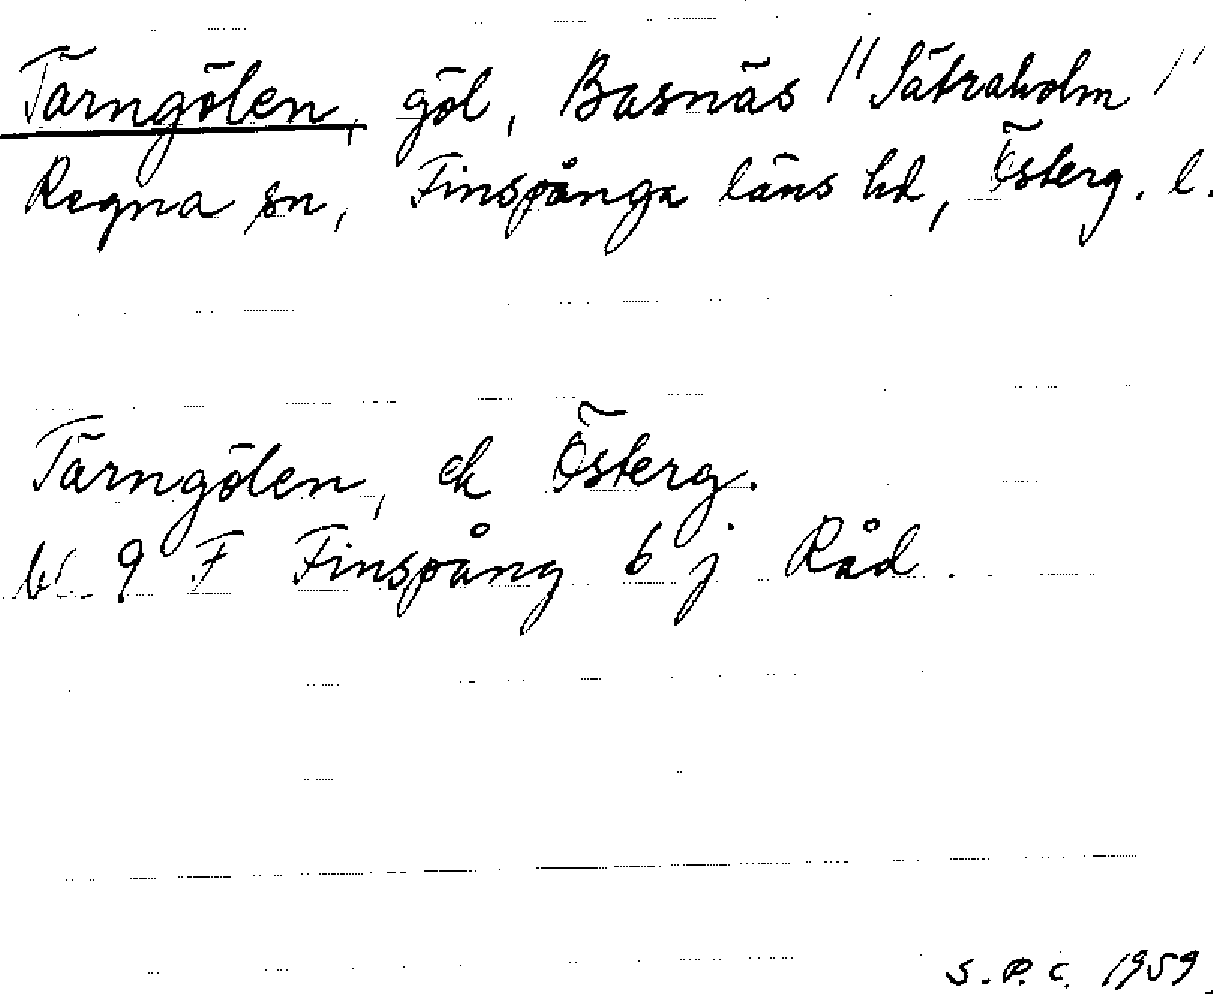 Tärngölen, göl, Basnäs /"Sätraholm"/
Regna sn, Finspånga läns hd, Österg. l.
Tärngölen, ek Österg.
bl 9 F Finspång 6 j Råd.
S.P.C. 1959.